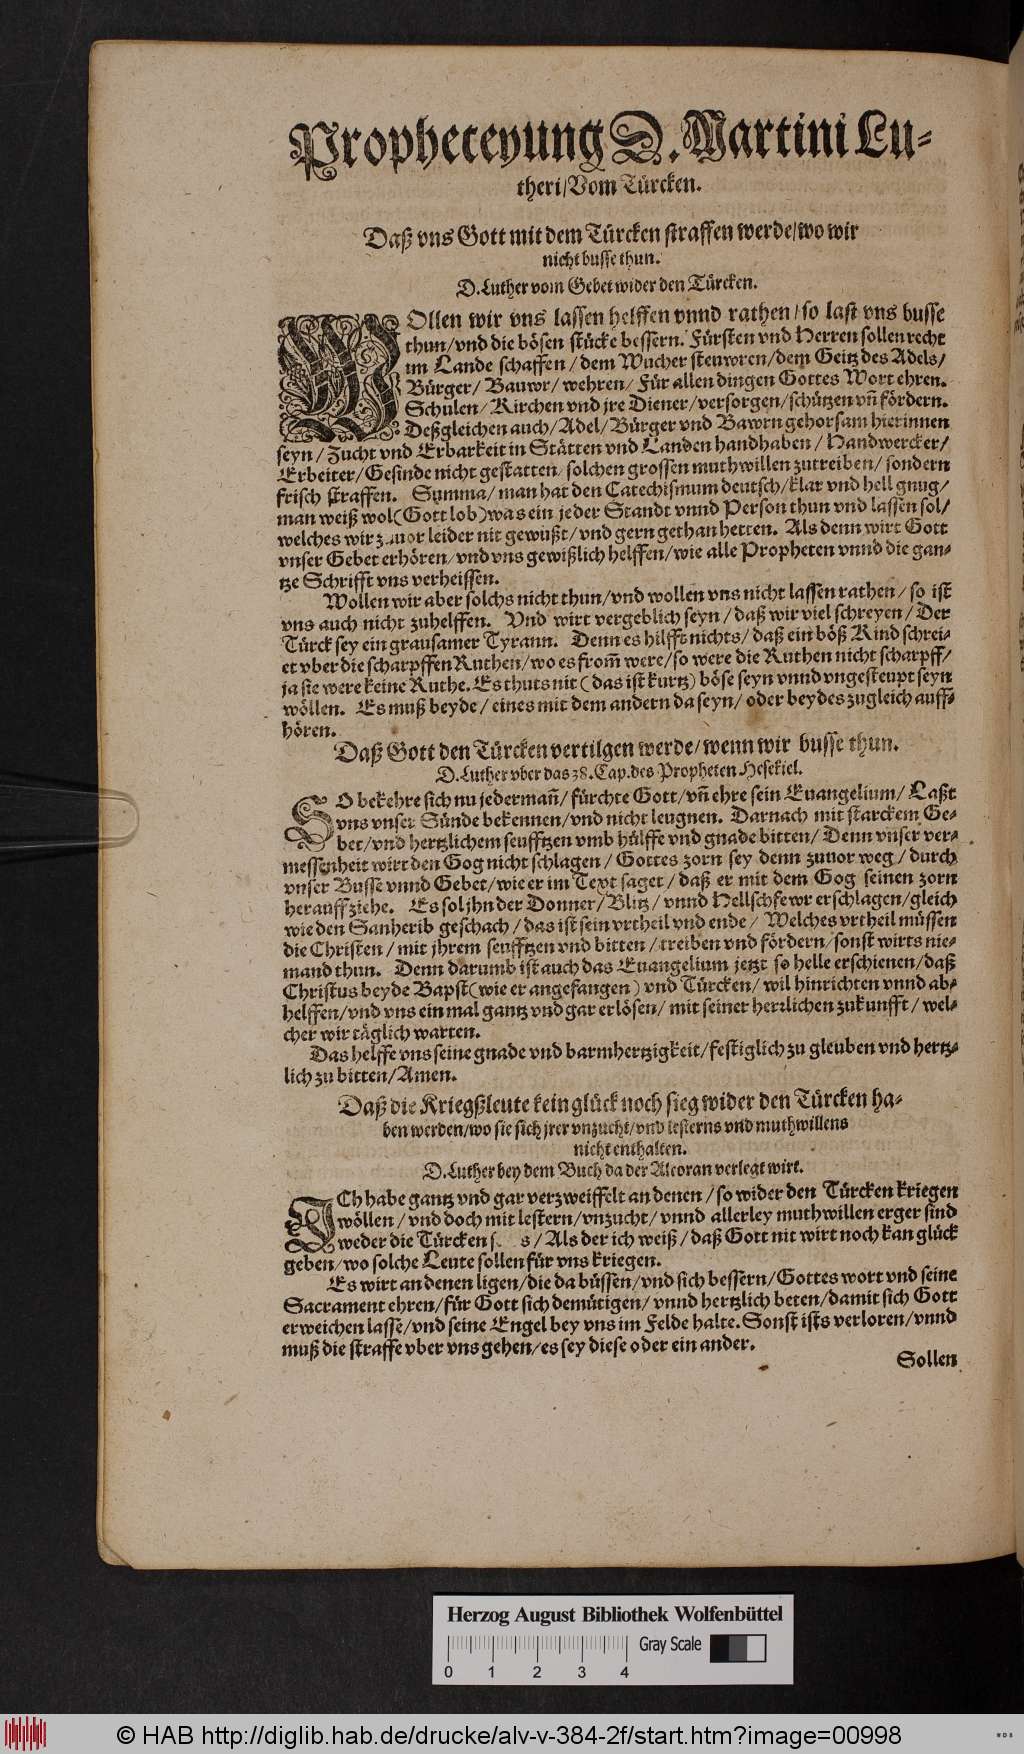 Propheceyung D. Martini Lu-
theri/Vom Türcken.
Daß vns Gott mit dem Türcken straffen werde/wo wir
nicht busse thun.
D. Luther vom Gebet wider den Türcken.
WOllen wir vns lassen helffen vnnd rathen/so last vns busse
thun/vnd die bösen stücke bessern. Fürsten vnd Herren sollen recht
im Lande schaffen/dem Wucher stewren/dem Geitz des Adels/
Bürger/Bauwr/wehren/Für allen dingen Gottes Wort ehren.
Schulen/Kirchen vnd jre Diener/versorgen/schützen vñ fördern.
Deßgleichen auch/Adel/Bürger vnd Bawrn gehorsam hierinnen
seyn/Zucht vnd Erbarkeit in Stätten vnd Landen handhaben/Handwercker/
Erbeiter/Gesinde nicht gestatten/solchen grossen muthwillen zutreiben/sondern
frisch straffen. Summa/man hat den Catechismum deutsch/klar vnd hell gnug/
man weiß wol(Gott lob)was ein jeder Standt vnnd Person thun vnd lassen sol/
welches wir zuuor leider nit gewußt/vnd gern gethan hetten. Als denn wirt Gott
vnser Gebet erhören/vnd vns gewißlich helffen/wie alle Propheten vnnd die gan-
tze Schrifft vns verheissen.
Wollen wir aber solchs nicht thun/vnd wollen vns nicht lassen rathen/so ist
vns auch nicht zuhelffen. Vnd wirt vergeblich seyn/daß wir viel schreyen/Der
Türck sey ein grausamer Tyrann. Denn es hilfft nichts/daß ein böß Kind schrei-
et vber die scharpffen Ruthen/wo es from̃ were/so were die Ruthen nicht scharpff/
ja sie were keine Ruthe. Es thuts nit (das ist kurtz) böse seyn vnnd vngesteupt seyn
wöllen. Es muß beyde/eines mit dem andern da seyn/oder beydes zugleich auff-
hören.
Daß Gott den Türcken vertilgen werde/wenn wir busse thun.
D. Luther vber das 38. Cap. des Propheten Hesekiel.
SO bekehre sich nu jedermañ/fürchte Gott/vñ ehre sein Euangelium/Laßt
vns vnser Sünde bekennen/vnd nicht leugnen. Darnach mit starckem Ge-
bet/vnd hertzlichem seufftzen vmb hülffe vnd gnade bitten/Denn vnser ver-
messenheit wirt den Gog nicht schlagen/Gottes zorn sey denn zuuor weg/durch
vnser Busse vnnd Gebet/wie er im Text saget/daß er mit dem Gog seinen zorn
herauff ziehe. Es sol jhn der Donner/Blitz/vnnd Hellschfewr erschlagen/gleich
wie den Sanherib geschach/das ist sein vrtheil vnd ende/Welches vrtheil müssen
die Christen/mit jhrem seufftzen vnd bitten/treiben vnd fördern/sonst wirts nie-
mand thun. Denn darumb ist auch das Euangelium jetzt so helle erschienen/daß
Christus beyde Bapst(wie er angefangen) vnd Türcken/wil hinrichten vnnd ab-
helffen/vnd vns ein mal gantz vnd gar erlösen/mit seiner herrlichen zukunfft/wel-
cher wir täglich warten.
Das helffe vns seine gnade vnd barmhertzigkeit/festiglich zu gleuben vnd hertz-
lich zu bitten/Amen.
Daß die Kriegßleute kein glück noch sieg wider den Türcken ha-
ben werden/wo sie sich jrer vnzucht/vnd lesterns vnd muthwillens
nicht enthalten.
D. Luther bey dem Buch da der Alcoran verlegt wirt.
ICh habe gantz vnd gar verzweiffelt an denen/so wider den Türcken kriegen
wöllen/vnd doch mit lestern/vnzucht/vnnd allerley muthwillen erger sind
weder die Türcken /Als der ich weiß/daß Gott nit wirt noch kan glück
geben/wo solche Leute sollen für vns kriegen.
Es wirt an denen ligen/die da büssen/vnd sich bessern/Gottes wort vnd seine
Sacrament ehren/für Gott sich demütigen/vnnd hertzlich beten/damit sich Gott
erweichen lasse/vnd seine Engel bey vns im Felde halte. Sonst ists verloren/vnnd
muß die straffe vber vns gehen/es sey diese oder ein ander.
Sollen
Herzog August Bibliothek Wolfenbüttel
Gray Scale
0 1 2 3 4
© HAB http://diglib.hab.de/drucke/alv-v-384-2f/start.htm?image=00998